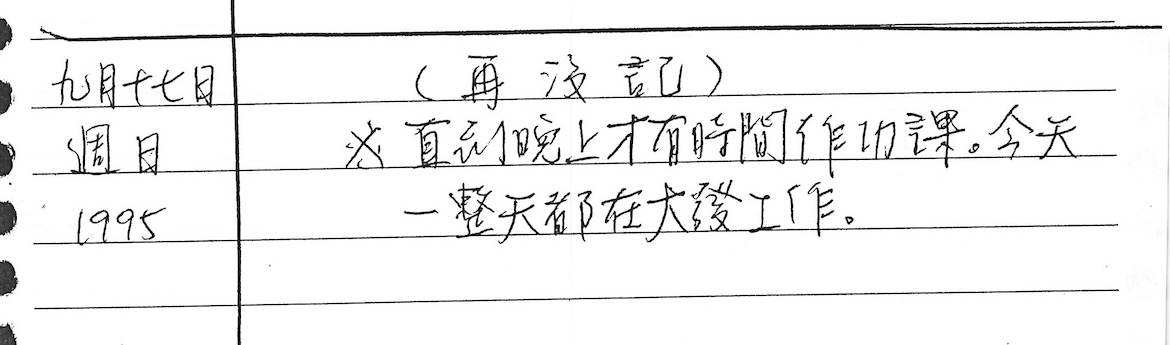 九月十七日
週日
1995
(再沒記)
※直到晚上才有時間作功課。今天
一整天都在大發工作。